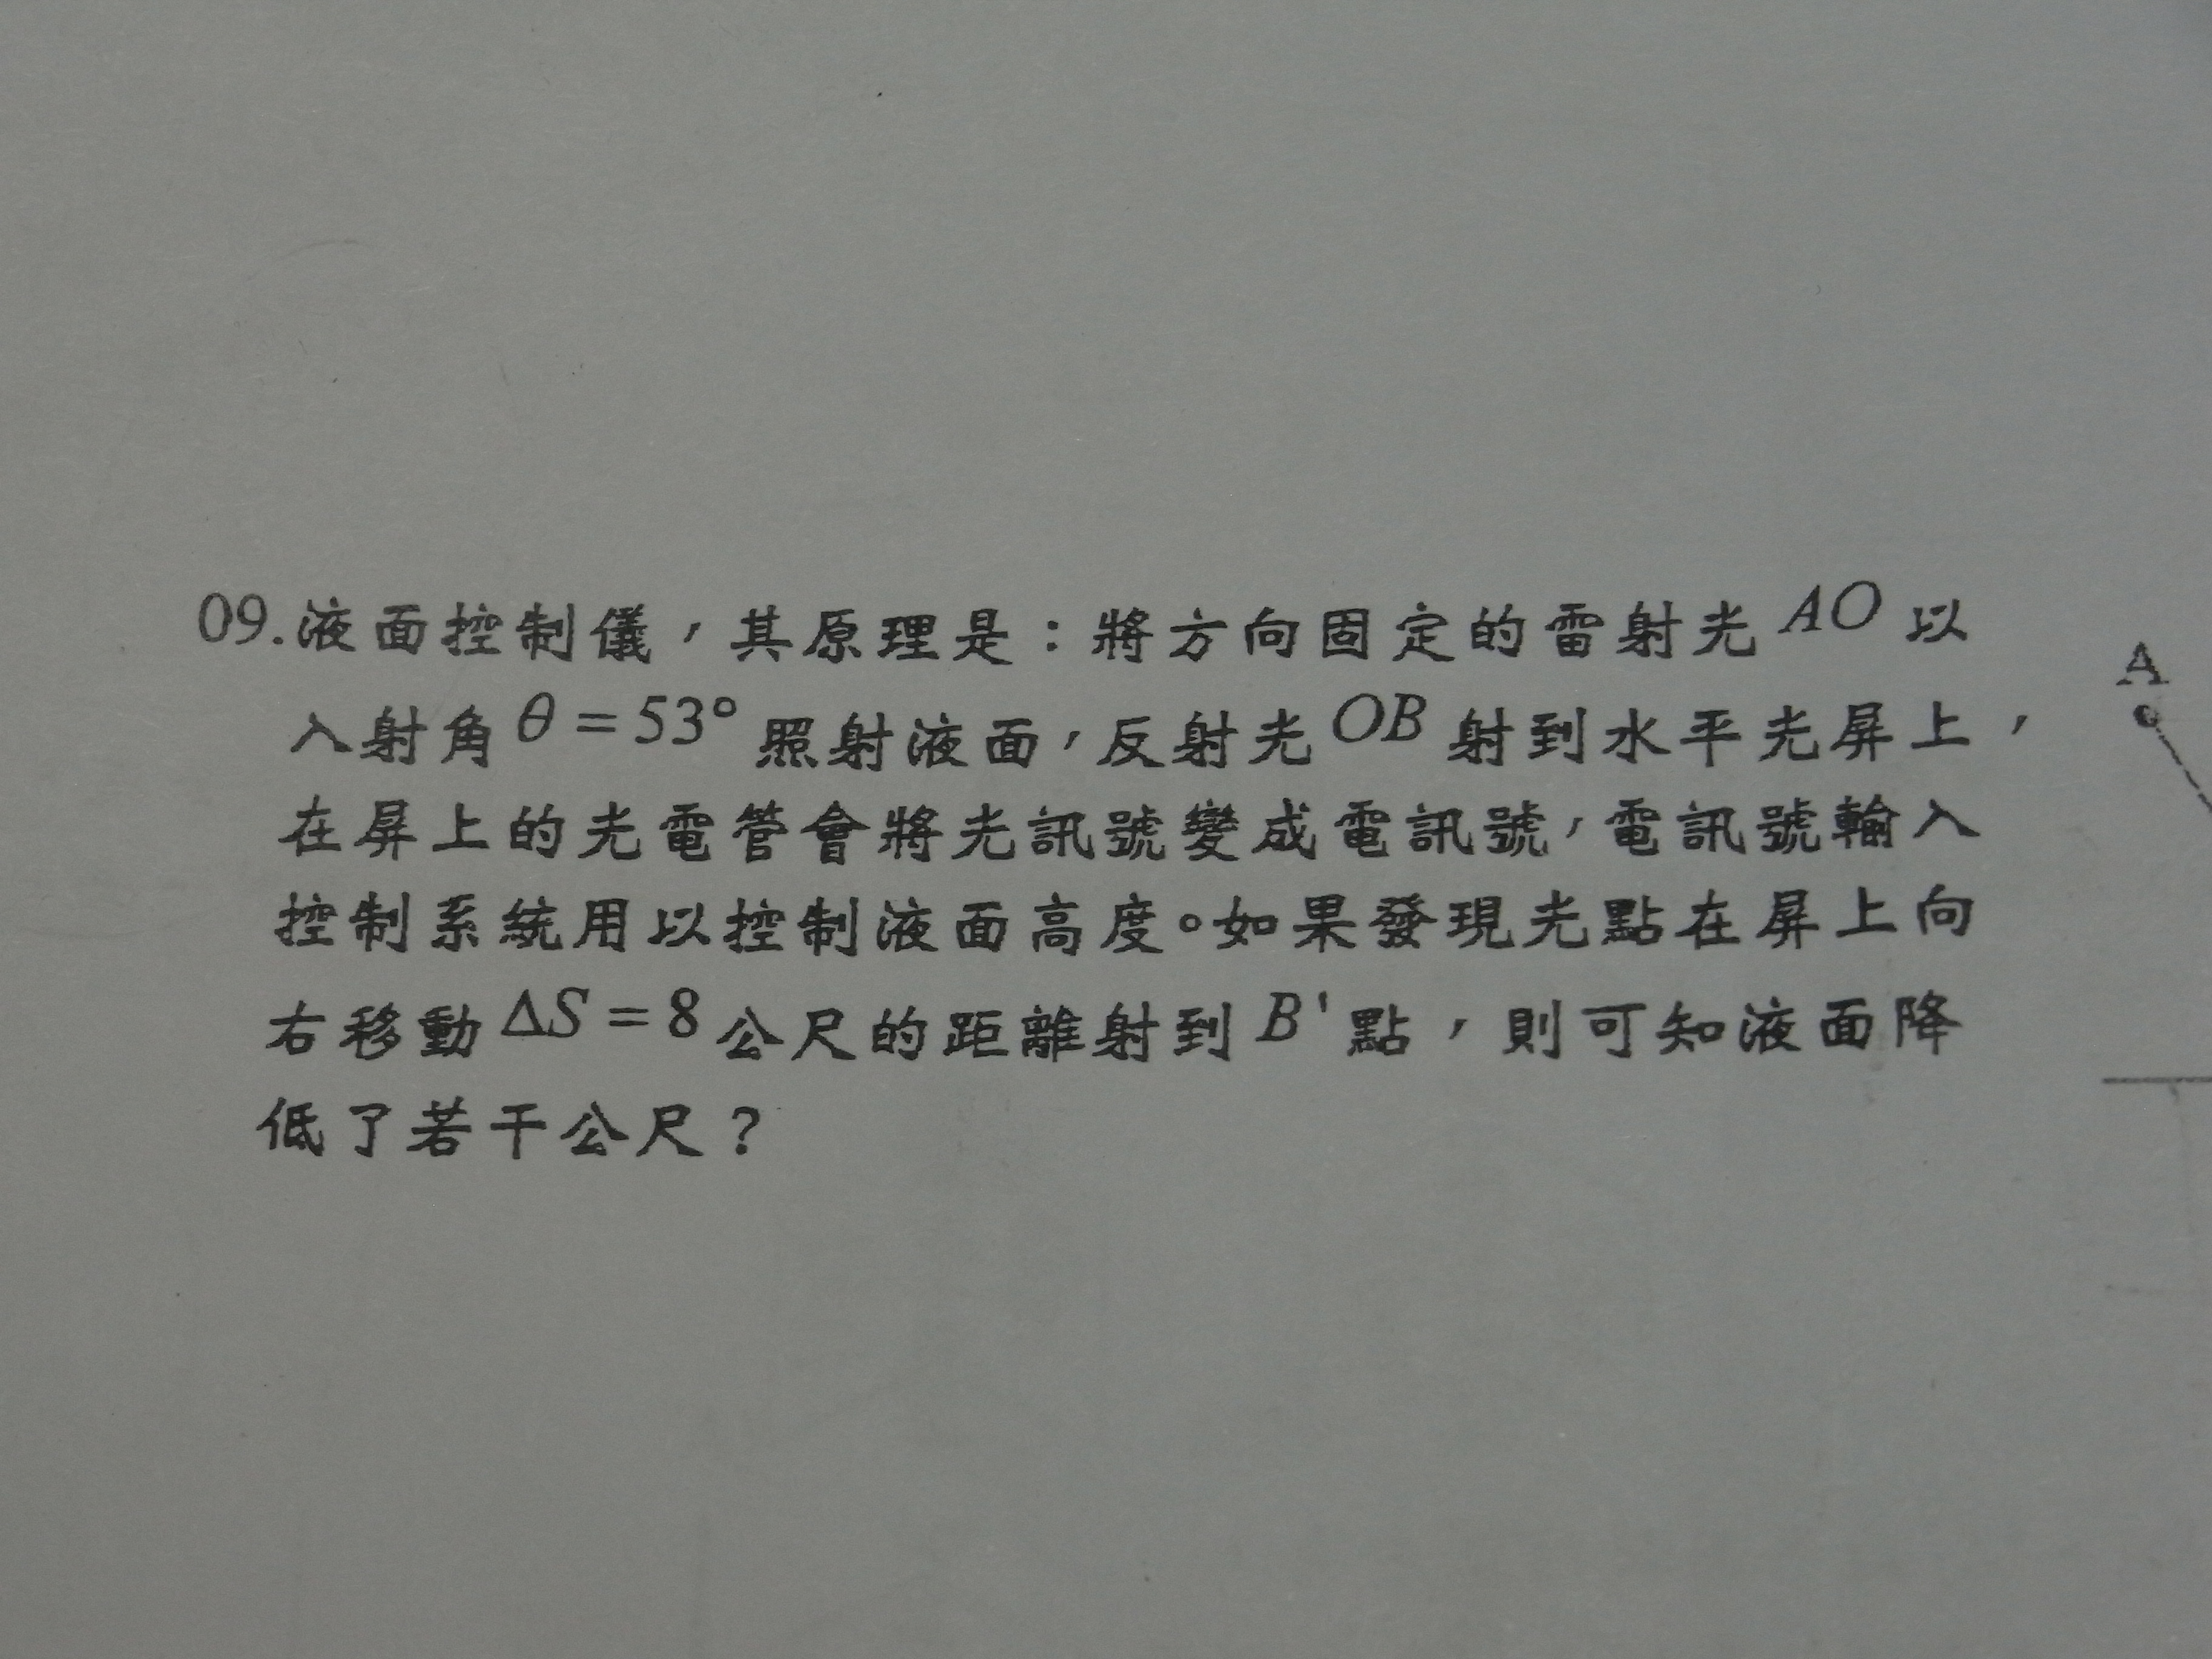 09.液面控制儀，其原理是：將方向固定的雷射光 AO 以
入射角 θ = 53° 照射液面，反射光 OB 射到水平光屏上，
在屏上的光電管會將光訊號變成電訊號，電訊號輸入
控制系統用以控制液面高度。如果發現光點在屏上向
右移動 ΔS = 8 公尺的距離射到 B' 點，則可知液面降
低了若干公尺？
A